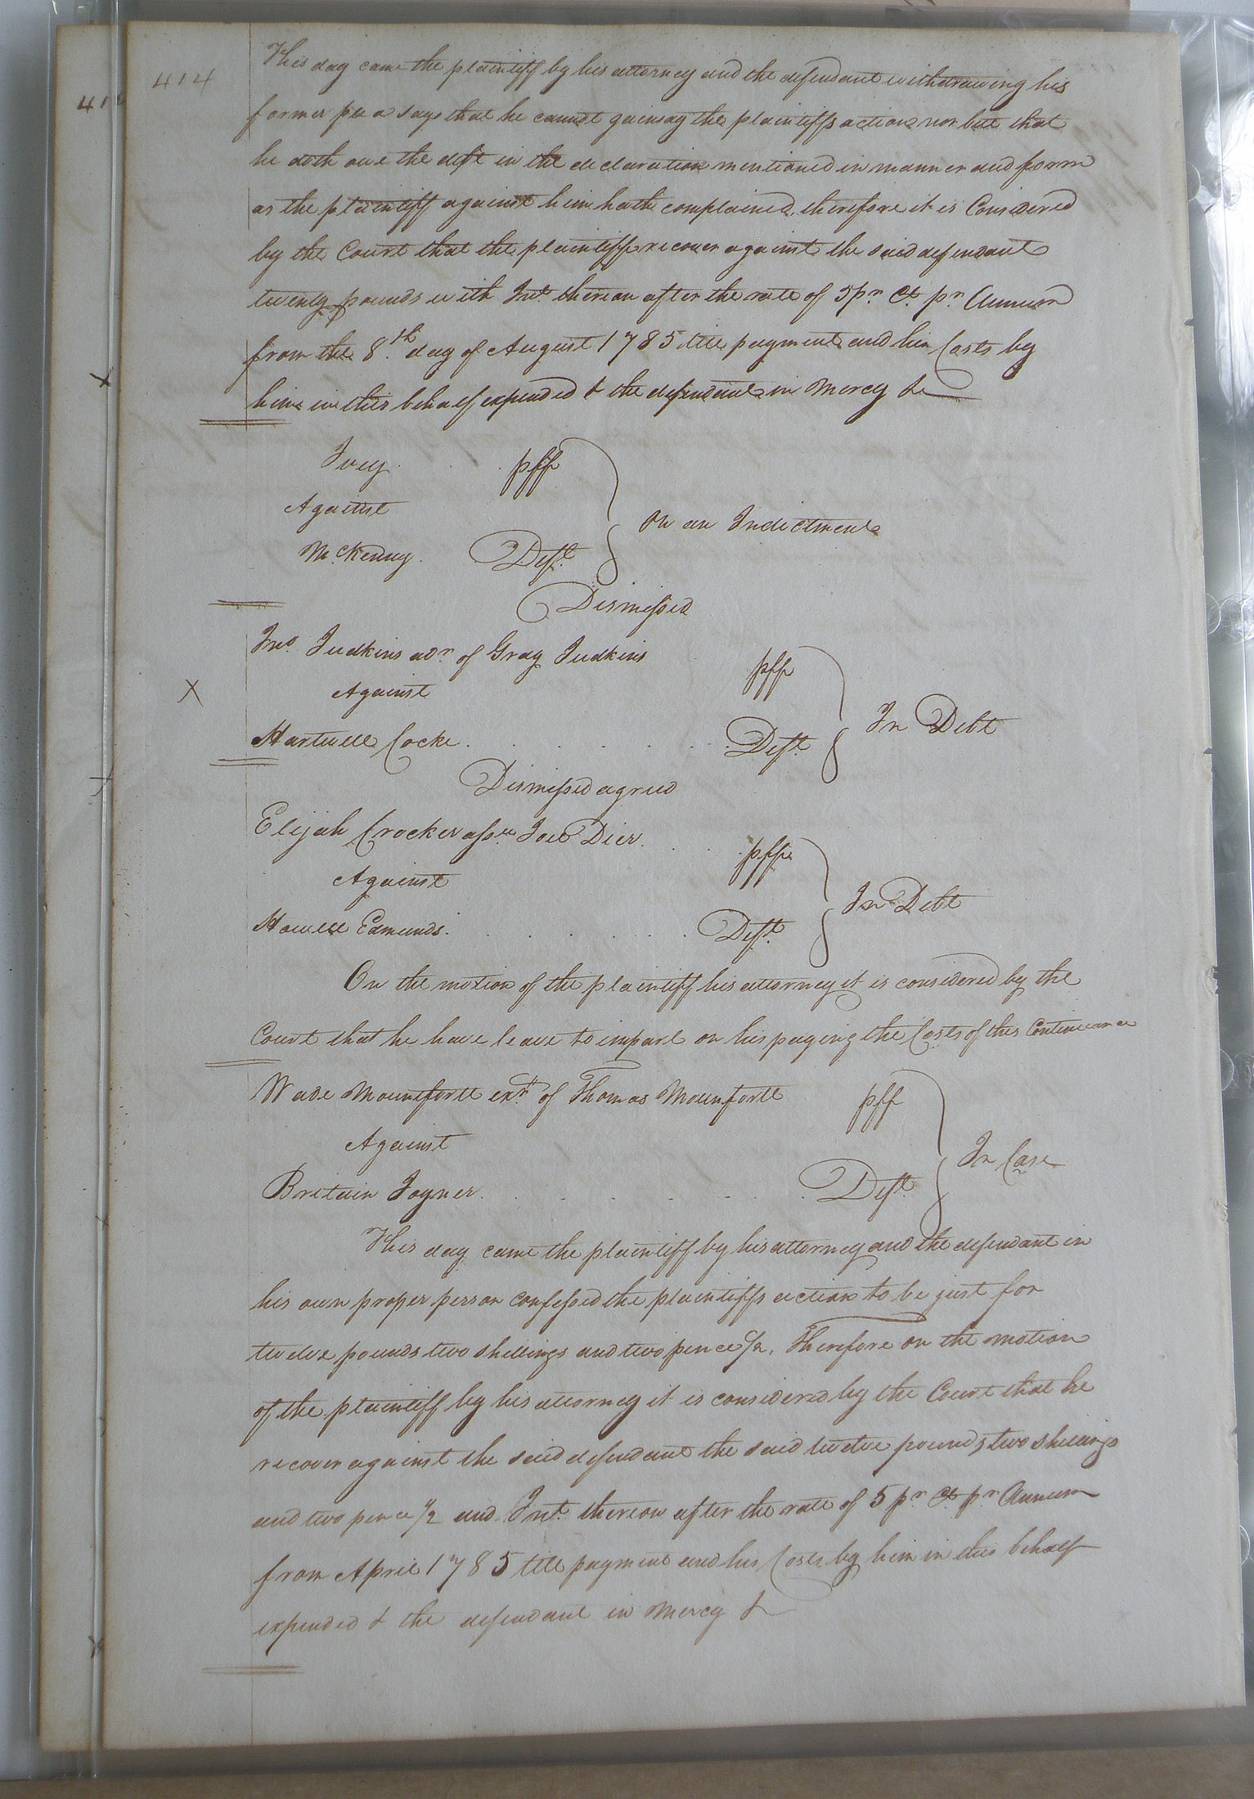 414
This day came the plaintiff by his attorney and the defendant withdrawing his
former plea says that he cannot gainsay the plaintiffs action nor but that
he doth owe the debt in the declaration mentioned in manner and form
as the plaintiff against him hath complained, therefore it is Considered
by the Court that the plaintiff recover against the said defendant
twenty pounds with Int thereon after the rate of 5 pr Ct. pr Annum
from the 8th day of August 1785 till payment and his Costs by
him in this behalf expended & the defendant in Mercy &
Ivey pff
Against On an Indictment
McKenny Deft
Dismissed
Jno. Judkins adr of Gray Judkins pff
Against In Debt
Hartwell Cocke Deft
Dismissed agreed
Elijah Crocker asse Joel Dier pff
Against In Debt
Howell Edmunds Deft
On the motion of the plaintiff his attorney it is considered by the
Court that he have leave to imparl on his paying the Costs of this Continuance
Wade Mountfortt exr of Thomas Mounfortt pff
Against In Case
Britain Joyner Deft
This day came the plaintiff by his attorney and the defendant in
his own proper person confessed the plaintiffs action to be just for
twelve pounds two shillings and two pence 1/2, Therefore on the motion
of the plaintiff by his attorney it is considered by the Court that he
recover against the said defendant the said twelve pounds two shillings
and two pence 1/2 and Int. thereon after the rate of 5 pr Ct pr Annum
from April 1785 till payment and his Costs by him in this behalf
expended & the defendant in Mercy &